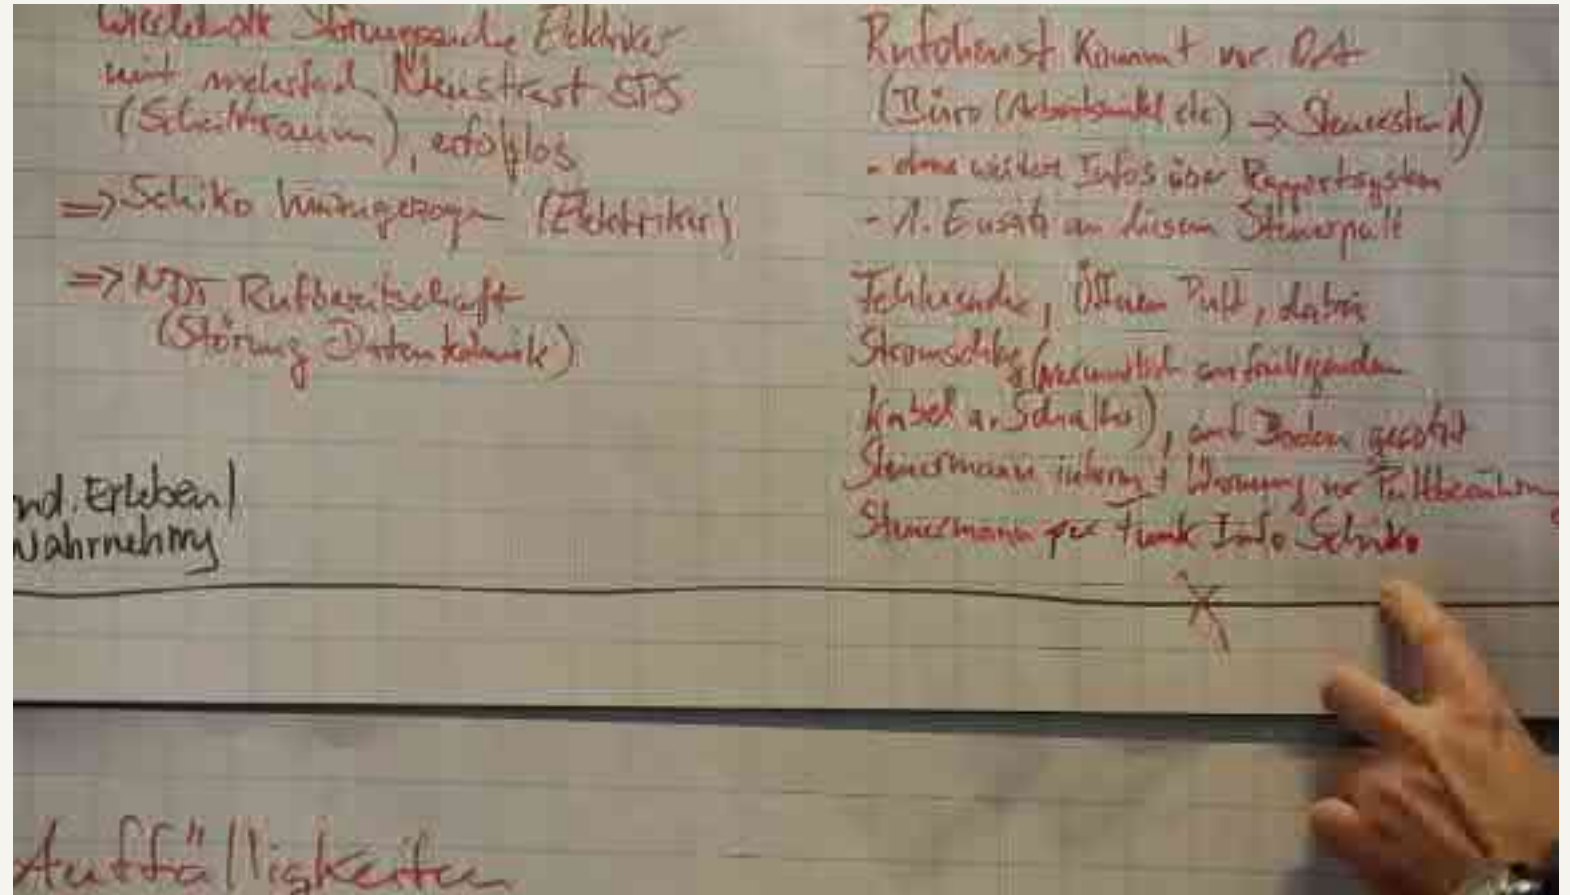 wiederholt Störungssuche Elektriker
mit mehrfach Neustart SPS
(Schaltraum), erfolglos
=> Schiko hinzugezogen (Elektriker)
=> NDT Rufbereitschaft
(Störung Datenkolonnik)
nd. Erleben/
Wahrnehmg
Rufdienst kommt vor Ort
(Büro (Arbeitsmittel etc) -> Steuerstand)
- ohne weitere Infos über Rapportsystem
- 1. Einsatz an diesem Steuerpult
Fehlersuche, Öffnen Pult, dabei
Stromschlag (vermutlich am freiliegenden
Kabel a. Schalter), auf Boden gesetzt
Steuermann inform + Warnung vor Pultberührung
Steuermann per Funk Info Schiko
Auffälligkeiten